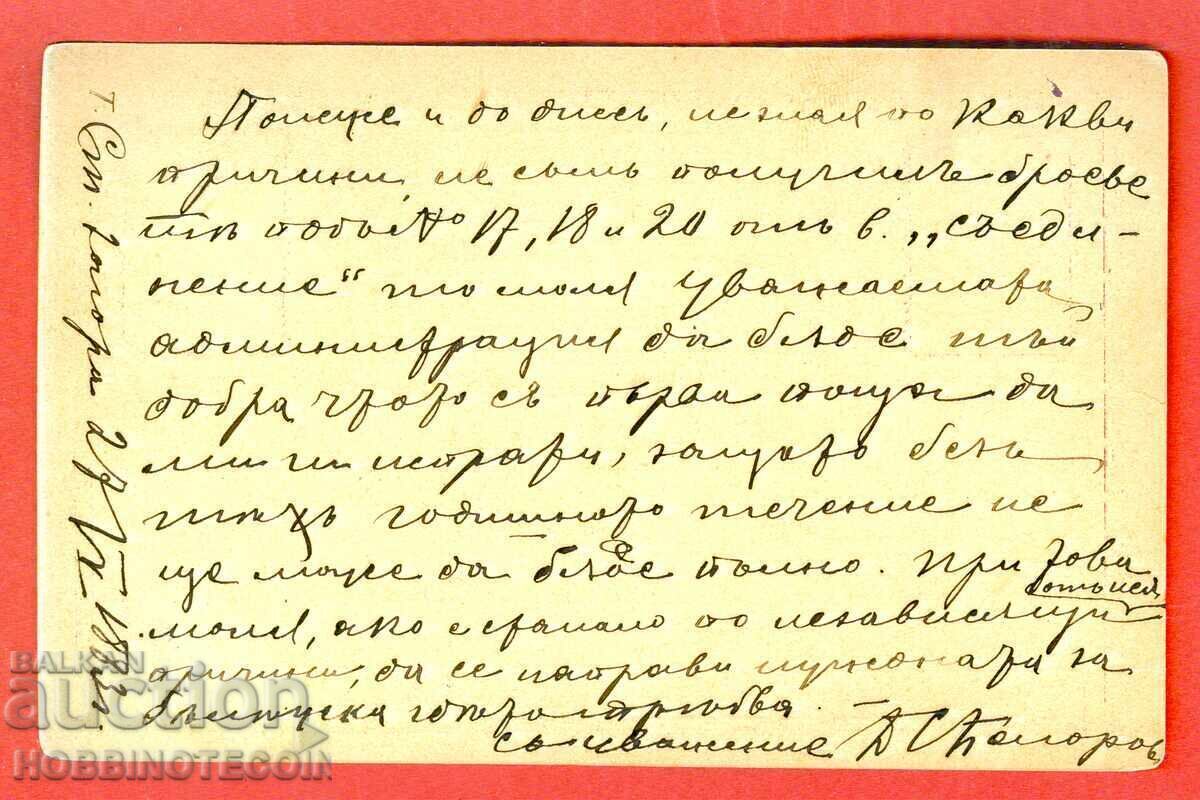 Понеже и до днесь, не зная по какви
причини, не съмь получилъ броеве
тѣ подъ № 17, 18 и 20 отъ в. „Съеди-
нение“ то моля уважаемата
администрация да бѫде тъй
добра щото съ първа поща да
ми ги испрати, защото безъ
тѣхъ годишното течение не
ще може да бѫде пълно. При това
моля, ако е станало по независящи
отъ нея
причини, да се направи нуждната за
бѫдѫще
съ уважение
т. Ст. Загора 28/VI 18
BALKAN
auction
HOBBINOTECOIN